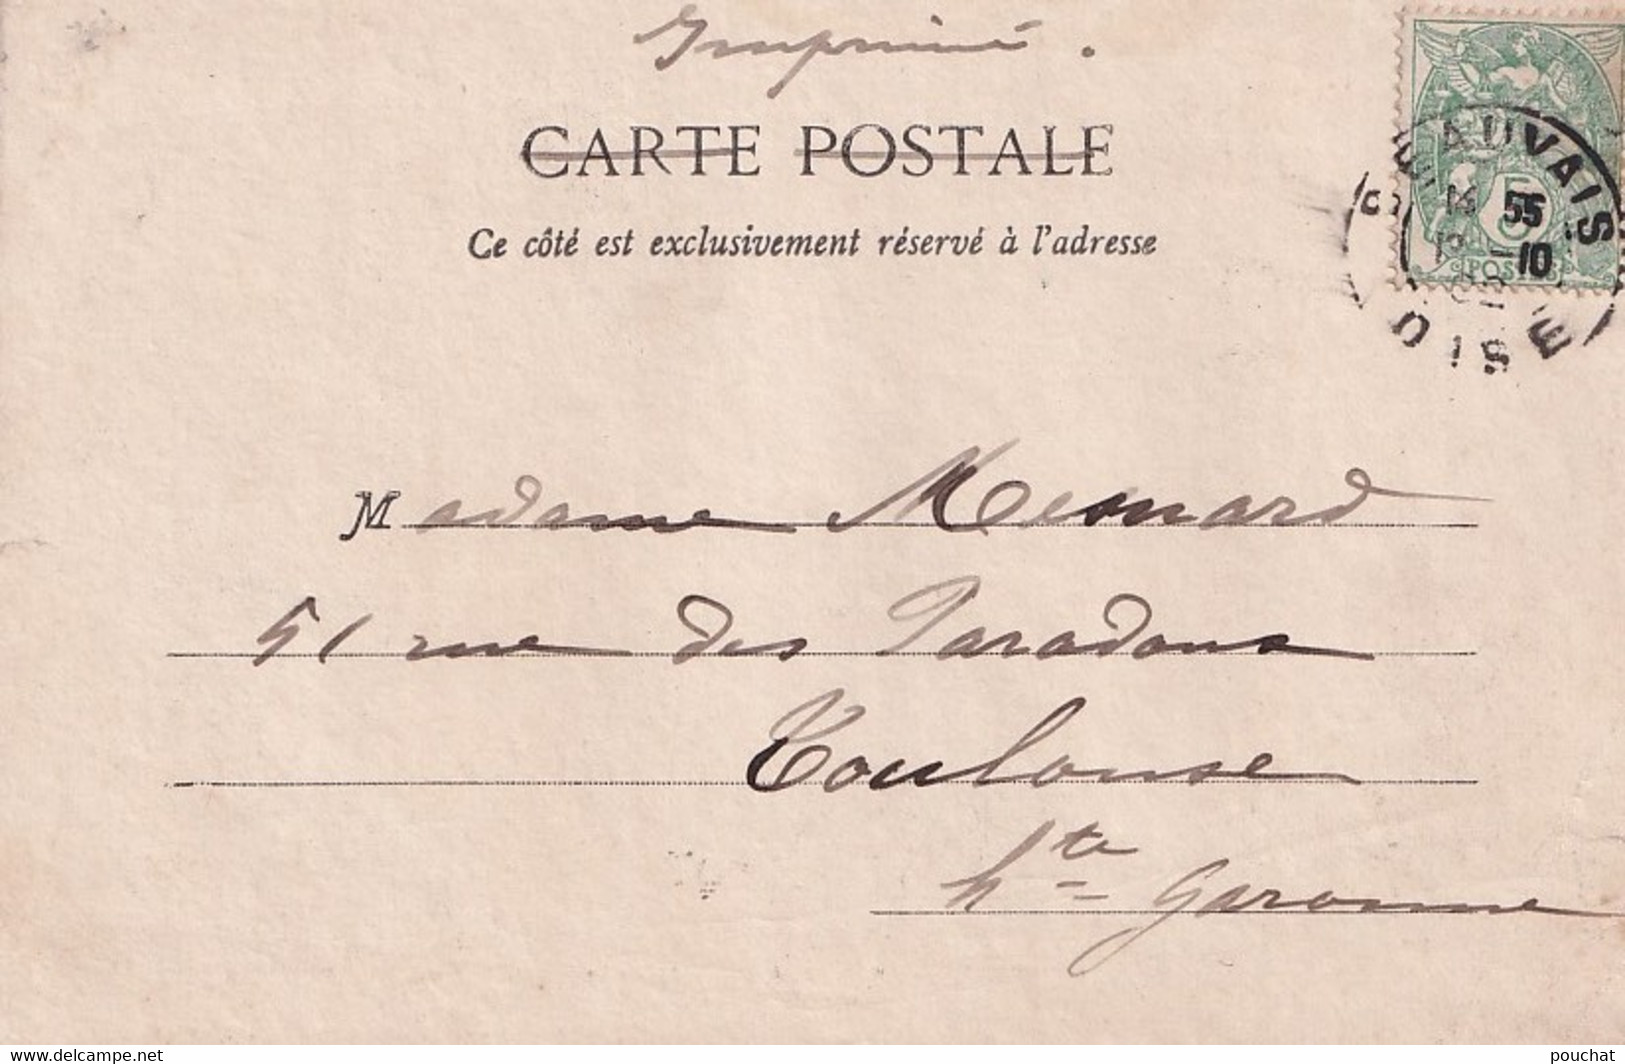 Imprimé.
CARTE POSTALE
Ce côté est exclusivement réservé à l'adresse
BEAUVAIS
14 55
10
OISE
5
POSTES
Madame Mesnard
51 rue des Paradoux
Toulouse
hte Garonne
www.delcampe.net
pouchat